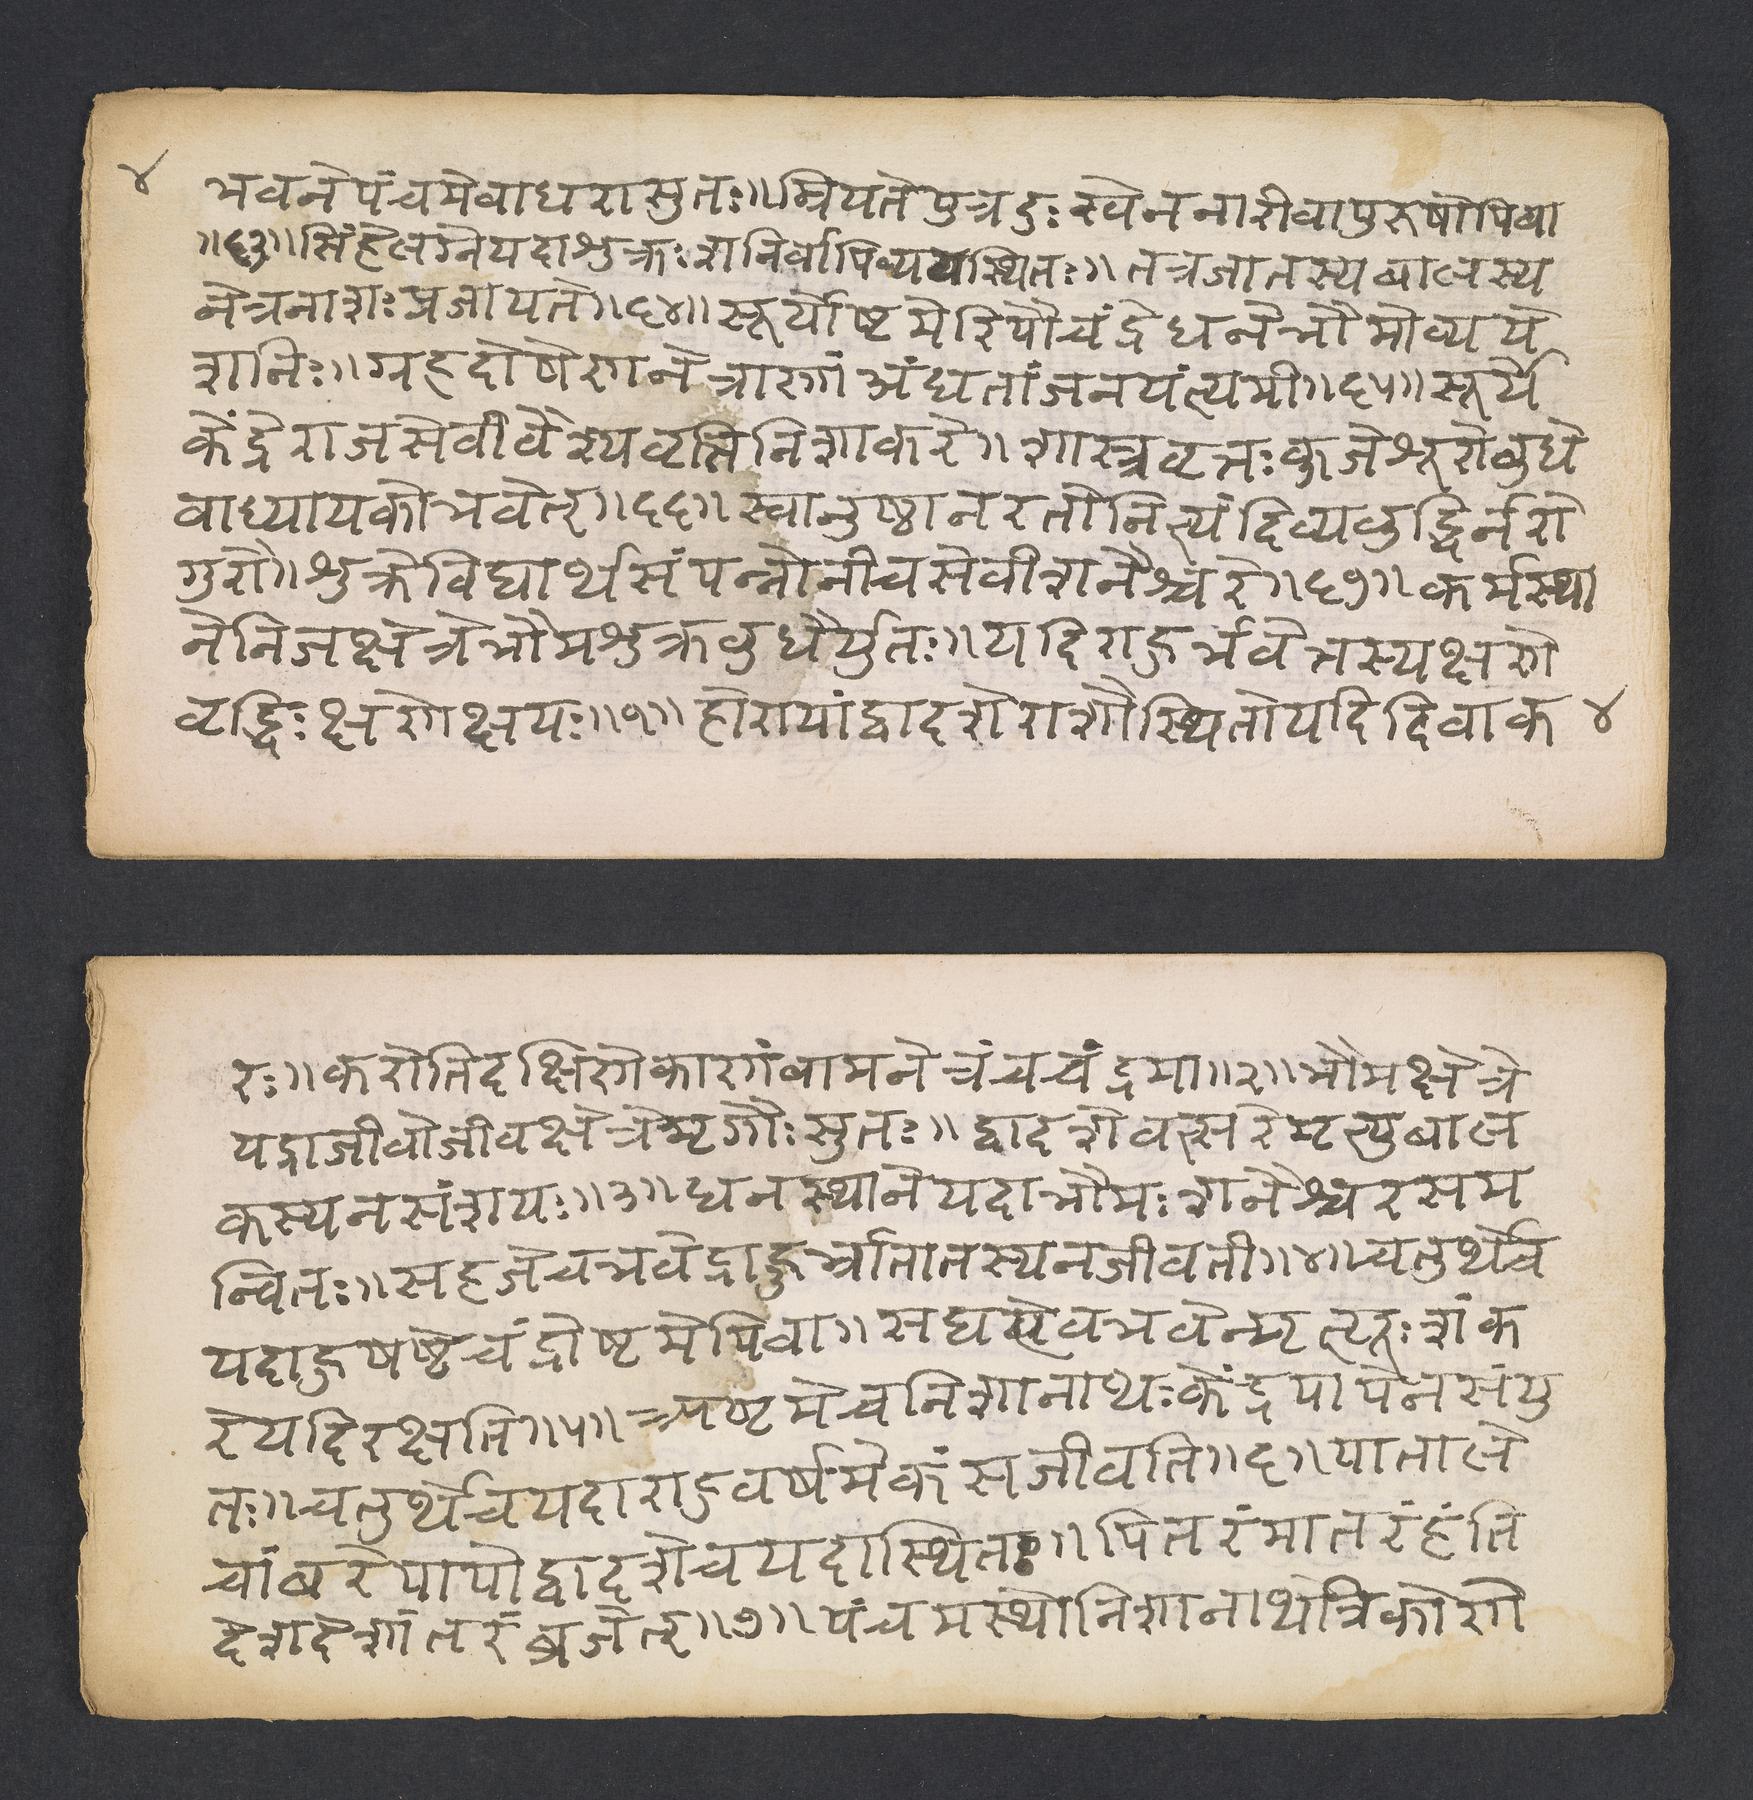 ४ भवनेपंचमेवाधरासुतः॥म्रियतेपुत्रदुःखेननारीवापुरूषोपिवा
॥६३॥सिंहेलग्नेयदाशुक्रःशनिर्वापिव्ययस्थितः॥तत्रजातस्यबालस्य
नेत्रनाशःप्रजायते॥६४॥सूर्योष्टमेरिपौचंद्रेधनेभौमोव्यये
शनिः॥ग्रहदोषेणनेत्राणांअंधतांजनयंत्यमी॥६५॥सूर्ये
केंद्रेराजसेवीवैश्यवृत्तिनिशाकरे॥शास्त्रवृत्तःकुजेशूरोबुधे
वाध्यायकोभवेत्॥६६॥स्वानुष्ठानेरतोनित्यंदिव्यबुद्धिर्नरो
गुरौ॥शुक्रेविद्यार्थसंपन्नोनीचसेवीशनैश्चरे॥६७॥कर्मस्था
नेनिजक्षेत्रेभौमशुक्रबुधैर्युतः॥यदिराहुर्भवेत्तस्यक्षणे
वृद्धिःक्षणेक्षयः॥१॥होरायांद्वादशेराशौस्थितोयदिदिवाक ४
रः॥करोतिदक्षिणेकाणंवामनेत्रंचचंद्रमा॥२॥भौमक्षेत्रे
यदाजीवोजीवक्षेत्रेमृगौःसुतः॥द्वादशेवत्सरेमृत्युबाल
कस्यनसंशयः॥३॥धनस्थानेयदाभौमःशनैश्चरसम
न्वितः॥सहजेचभवेद्राहुर्भ्रातातस्यनजीवती॥४॥चतुर्थेच
यदाहुषष्टेचंद्रोष्टमेपिवा॥सद्यस्येवभवेन्मृत्यूःशंक
रेयदिरक्षति॥५॥अष्टमेचनिशानाथःकेंद्रपापेनसंयु
तः॥चतुर्थेचयदाराहुवर्षमेकंसजीवति॥६॥पाताले
चांबरेपापोद्वादशेचयदास्थितः॥पितरंमातरंहंति
देशदेशांतरंब्रजेत्॥७॥पंचमस्थोनिशानाथोत्रिकोणे